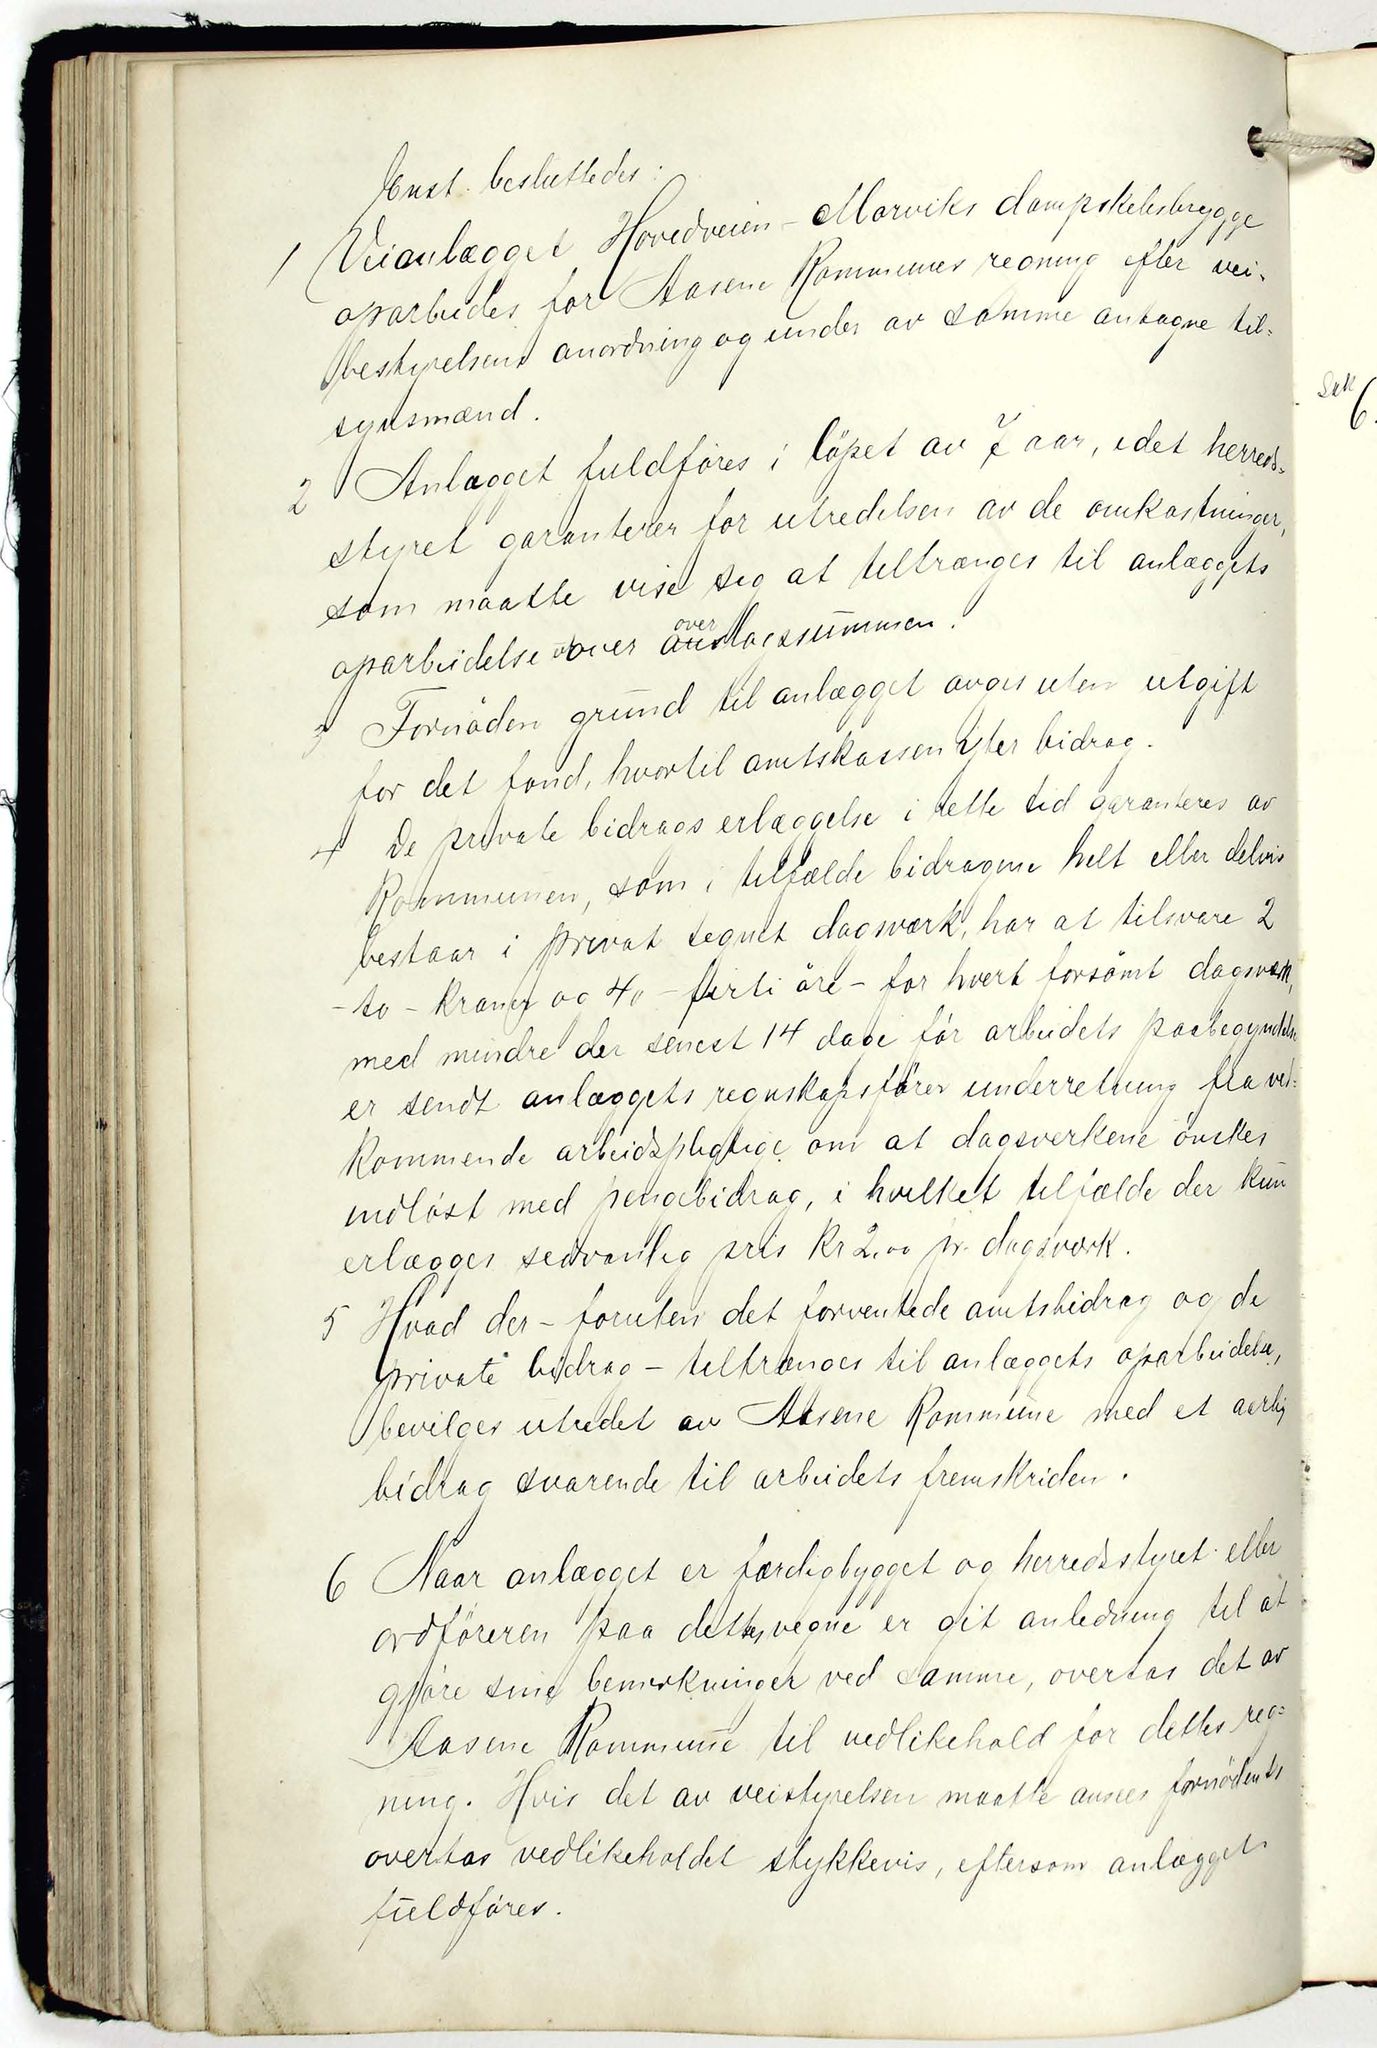 Enst. besluttedes:
1 Veianlægget Hovedveien - Marviks dampskibsbrygge
oparbeides for Aasene Kommunes regning efter vei-
bestyrelsens anordning og under av samme antagne til-
synsmænd.
2 Anlægget fuldføres i løpet av 7 aar, idet herreds-
styret garanterer for utredelsen av de omkostninger,
som maatte vise sig at tiltrænges til anlæggets
oparbeidelse over overslagssummen.
3 Fornöden grund til anlægget avges uten utgift
for det fond, hvortil amtskassen yter bidrag.
4 De private bidrags erlæggelse i rette tid garanteres av
Kommunen, som i tilfælde bidragene helt eller delvis
bestaar i privat tegnet dagsværk, har at tilsvare 2
- to - kroner og 40 - firti öre - for hvert forsömt dagsværk,
med mindre der senest 14 dage för arbeidets paabegyndelse
er sendt anlæggets regnskapsförer underretning fra ved-
kommende arbeidspligtige om at dagsverkene önskes
indlöst med pengebidrag, i hvilket tilfælde der kun
erlægges sedvanlig pris kr 2,00 pr. dagsværk.
5 Hvad der - foruten det forventede amtsbidrag og de
private bidrag - tiltrænges til anlæggets oparbeidelse,
bevilges utredet av Aasene Kommune med et aarlig
bidrag svarende til arbeidets fremskriden.
6 Naar anlægget er færdigbygget og herredsstyret eller
ordföreren paa dettes vegne er git anledning til at
gjöre sine bemerkninger ved samme, overtas det av
Aasene Kommune til vedlikehold for dettes reg-
ning. Hvis det av veistyrelsen maatte ansees fornödent
overtas vedlikeholdet stykkevis, eftersom anlægget
fuldføres.
Sak
6.